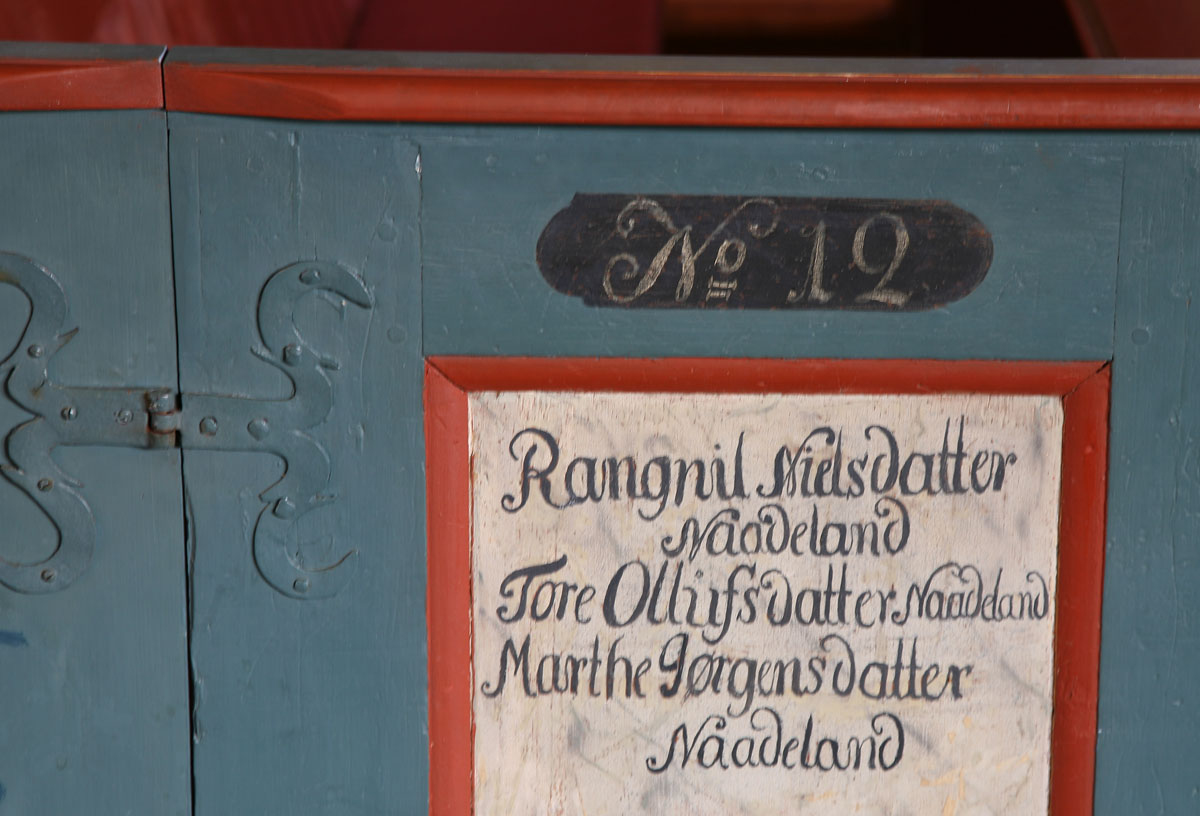 No 12
Rangnil Nielsdatter
Naadeland
Tore Ollufsdatter Naadeland
Marthe Jørgensdatter
Naadeland